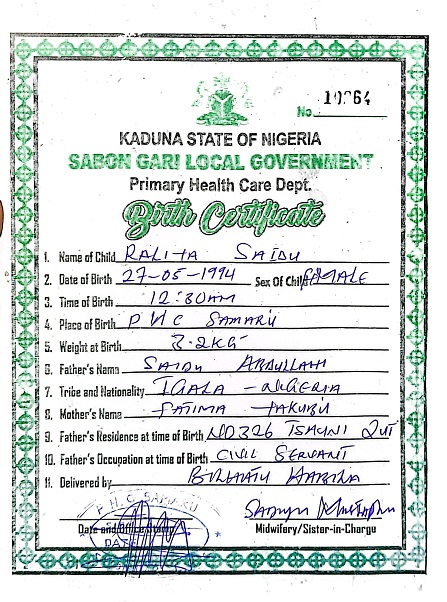 No. 19864
KADUNA STATE OF NIGERIA
SABON GARI LOCAL GOVERNMENT
Primary Health Care Dept.
Birth Certificate
1. Name of Child RALIYA SAIDU
2. Date of Birth 27-05-1994 Sex Of Child FEMALE
3. Time of Birth 12:30AM
4. Place of Birth PHC SAMARU
5. Weight at Birth 3.2KG
6. Father's Name SAIDU ABDULLAHI
7. Tribe and Nationality IGALA - NIGERIA
8. Mother's Name FATIMA YAKUBU
9. Father's Residence at time of Birth NO 326 TSAUNI QUT
10. Father's Occupation at time of Birth CIVIL SERVANT
11. Delivered by HABIBA
P.H.C SAMARU
Date and Office Stamp Midwifery/Sister-in-Chargu
DATE